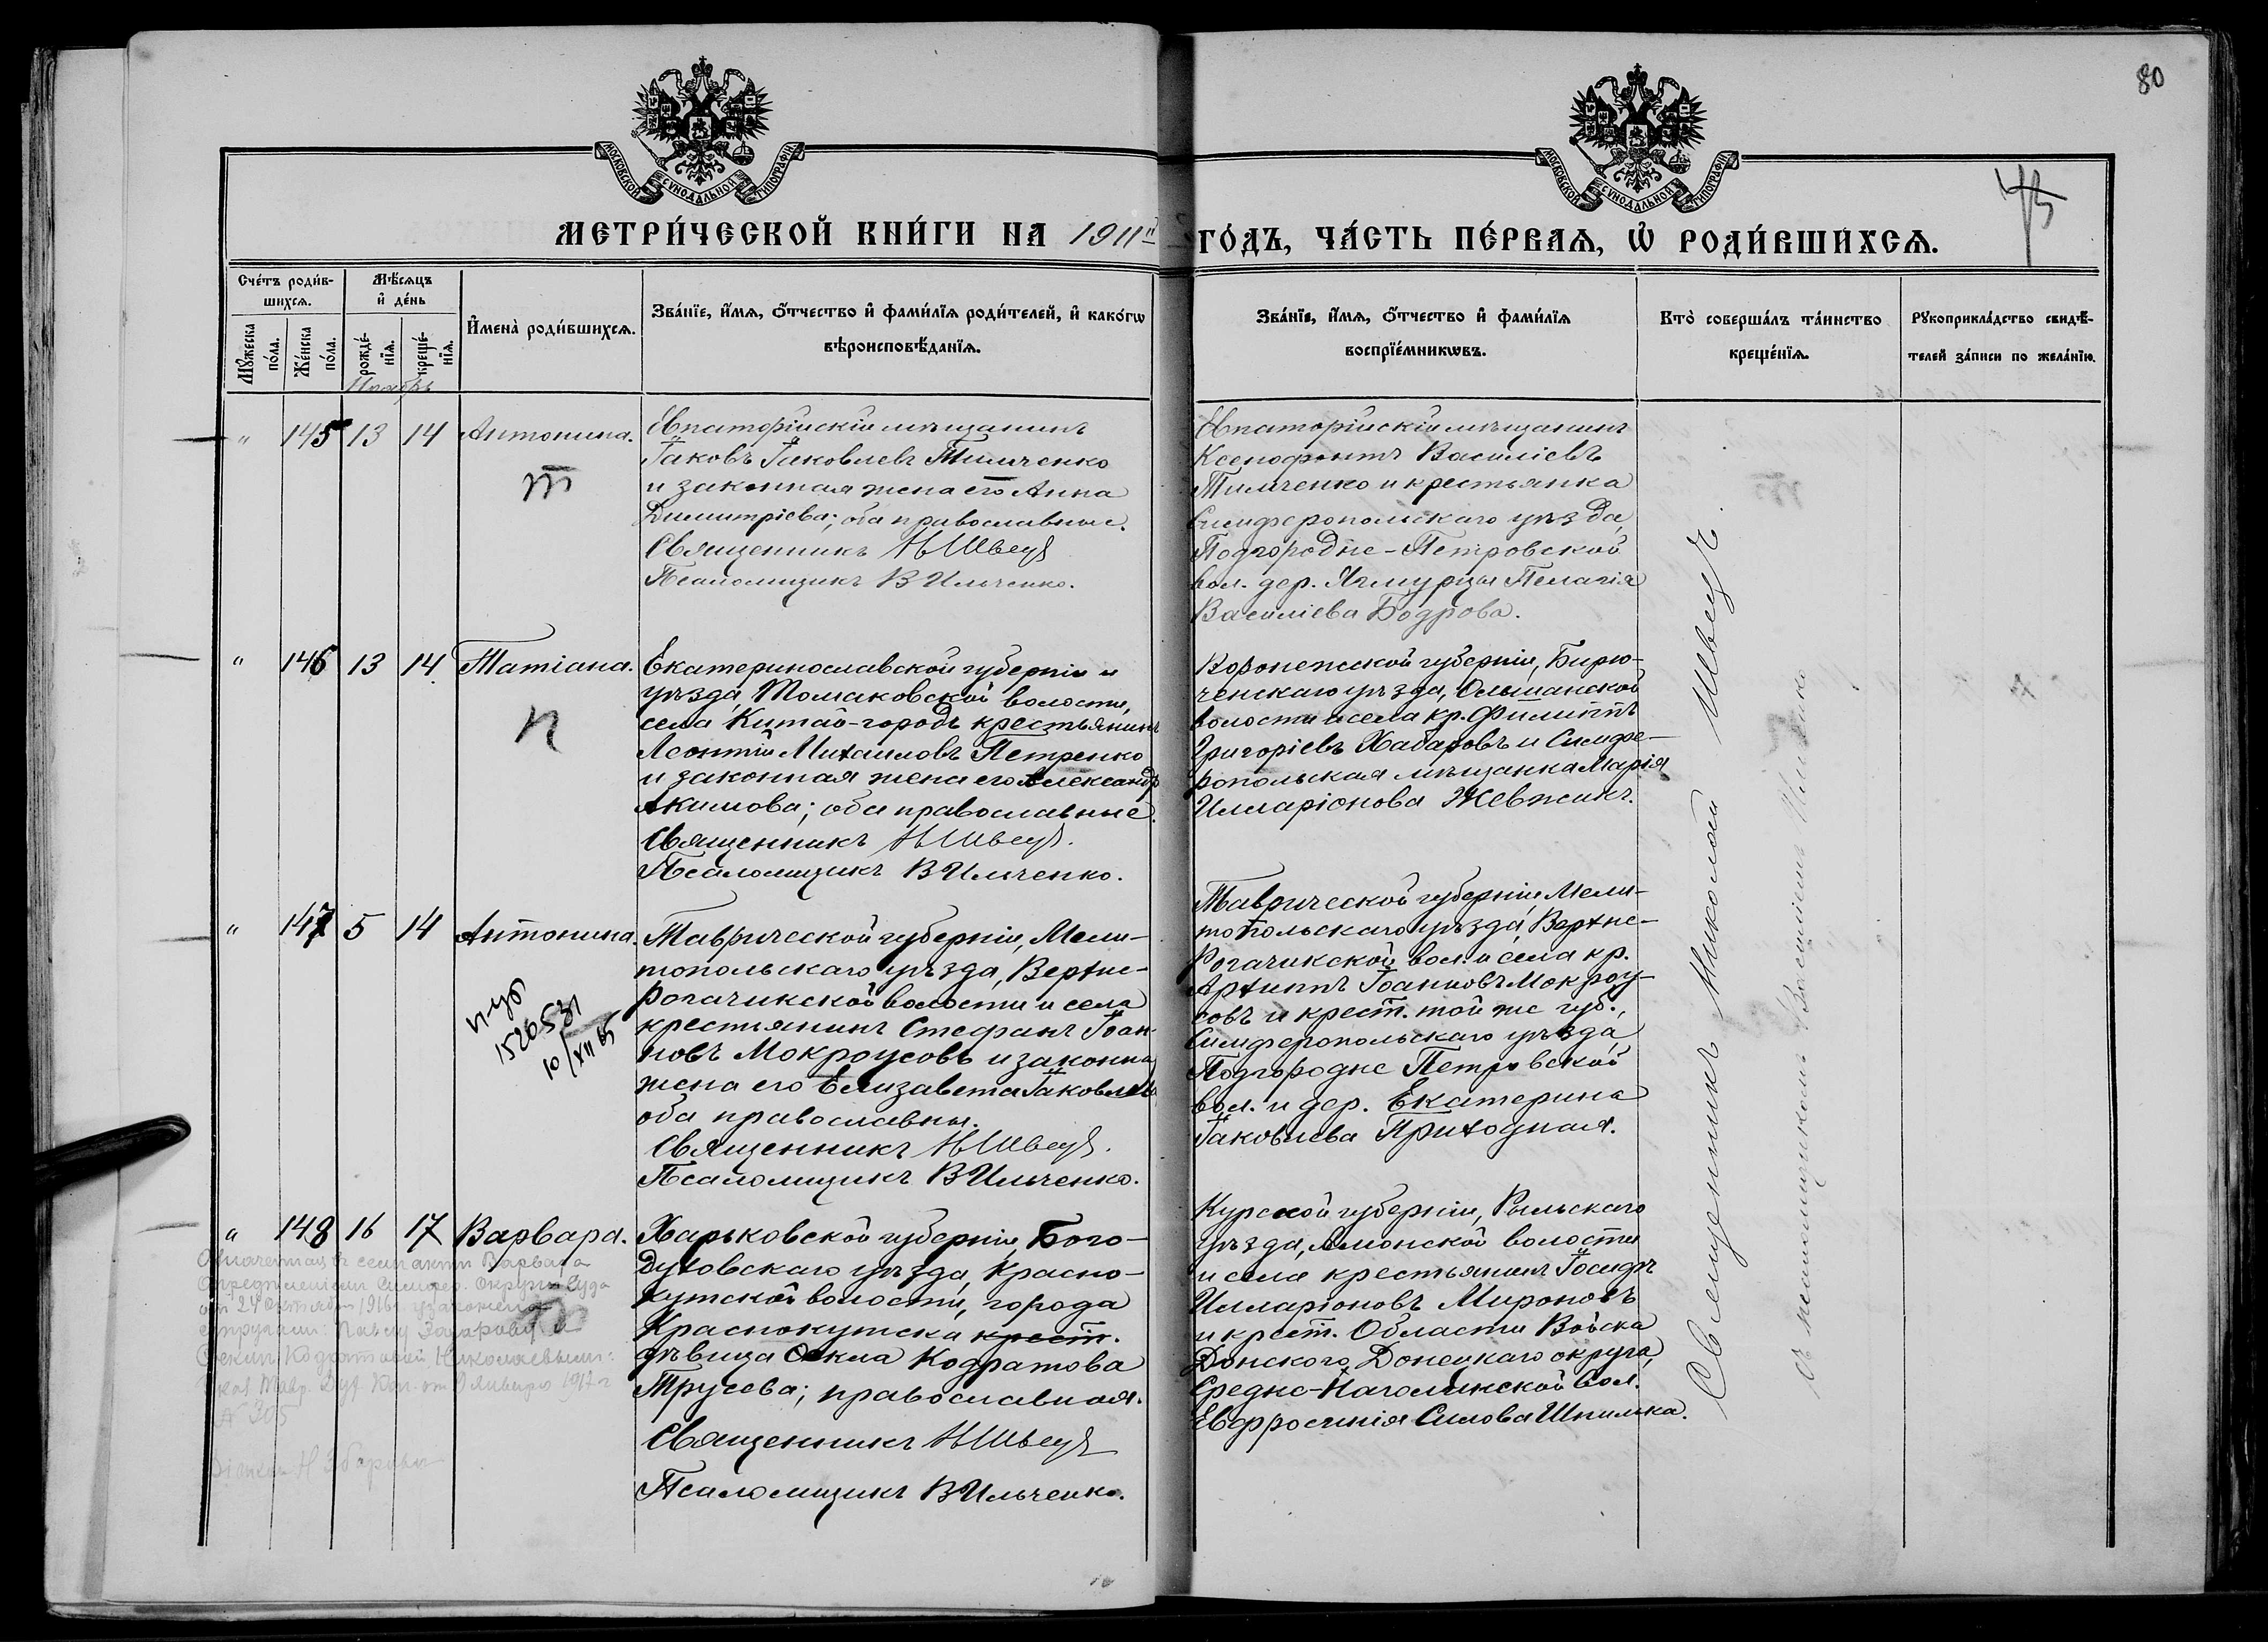 80
МОСКОВСКОЙ СѴНОДАЛЬНОЙ ТИПОГРАФІИ
МОСКОВСКОЙ СѴНОДАЛЬНОЙ ТИПОГРАФІИ
МЕТРИ́ЧЕСКОЙ КНИ́ГИ НА 1911й ГО́ДЪ, ЧА́СТЬ ПЕ́РВАѦ, Ѽ РОДИ́ВШИХСѦ.
Сче́тъ роди́в-
шихсѧ.
Мꙋ́жеска
по́ла.
Же́нска
по́ла.
Мѣ́сѧцъ
и҆ де́нь
рожде́-
нїѧ.
креще́-
нїѧ.
И҆мена̀ роди́вшихсѧ.
Зва́нїе, и҆́мѧ, ѻ҆́тчество и҆ фами́лїѧ роди́телей, и҆ како́гѡ
вѣроисповѣ́данїѧ.
Зва́нїе, и҆́мѧ, ѻ҆́тчество и҆ фами́лїѧ
воспрїе́мникѡвъ.
Кто̀ соверша́лъ та́инство
креще́нїѧ.
Рꙋкоприкла́дство свидѣ́-
телей за́писи по жела́нїю.
Ноябрь
" 145 13 14 Антонина.
Евпаторійскій мѣщанинъ
Іаковъ Іаковлевъ Тимченко
и законная жена его Анна
Димитріева; оба православные.
Священникъ Н Швецъ
Псаломщикъ В Ильченко.
Евпаторійскій мѣщанинъ
Ксенофонтъ Василіевъ
Тимченко и крестьянка
Симферопольскаго уѣзда,
Подгородне-Петровской
вол. дер. Пелагія
Василіева Бодрова.
" 146 13 14 Татіана.
п
Екатеринославской губерніи и
уѣзда, Томаковской волости,
села Китай-городъ крестьянинъ
Леонтій Михаиловъ Петренко
и законная жена его Александр
Акимова; оба православные.
Священникъ Н Швецъ.
Псаломщикъ В Ильченко.
Воронежской губерніи, Бирю-
ченскаго уѣзда, Ольшанской
волости и села кр. Филиппъ
Григоріевъ Хабаровъ и Симфе-
ропольская мѣщанка Марія
Илларіонова Жевжикъ.
" 147 5 14 Антонина.
1526531
10/XII 65
Таврической губерніи, Мели-
топольскаго уѣзда, Верхне-
рогачикской волости и села
крестьянинъ Стефанъ Іоан-
новъ Мокроусовъ и законна
жена его Елизавета Іаковлева
оба православны.
Священникъ Н Швецъ.
Псаломщикъ В Ильченко.
Таврической губерніи Мели-
топольскаго уѣзда, Верхне-
Рогачикской вол. и села кр.
Архиппъ Іоанновъ Мокроу-
совъ и крест. той же губ.,
Симферопольскаго уѣзда,
Подгородне Петровской
вол. и дер. Екатерина
Іаковлева Приходная.
" 148 16 17 Варвара.
Харьковской губерніи, Бого-
духовскаго уѣзда, Красно-
кутской волости, города
Краснокутска крест.
дѣвица Ѳекла Кодратова
Трусева; православная.
Священникъ Н Швецъ
Псаломщикъ В Ильченко.
Курской губерніи, Рыльскаго
уѣзда, Амонской волости
и села крестьянинъ Іосифъ
Илларіоновъ Мироновъ
и крест. Области Войска
Донского, Донецкаго округа,
Средне-Нагольнской вол.
Евфросинія Силова Шпилька.
Священникъ Николай Швецъ.
съ псаломщикомъ Василіемъ Ильченко
Означенная въ семъ актѣ Варвара
Опредѣленіемъ Симфер. Окружн. Суда
от 24 Октября 1916 г. узаконена
супругами: Павлу Захарову и
Ѳеклы Кодратовой Николаевыми:
Указ Тавр. Дух. Кон. от 9 Января 1917 г
№ 305